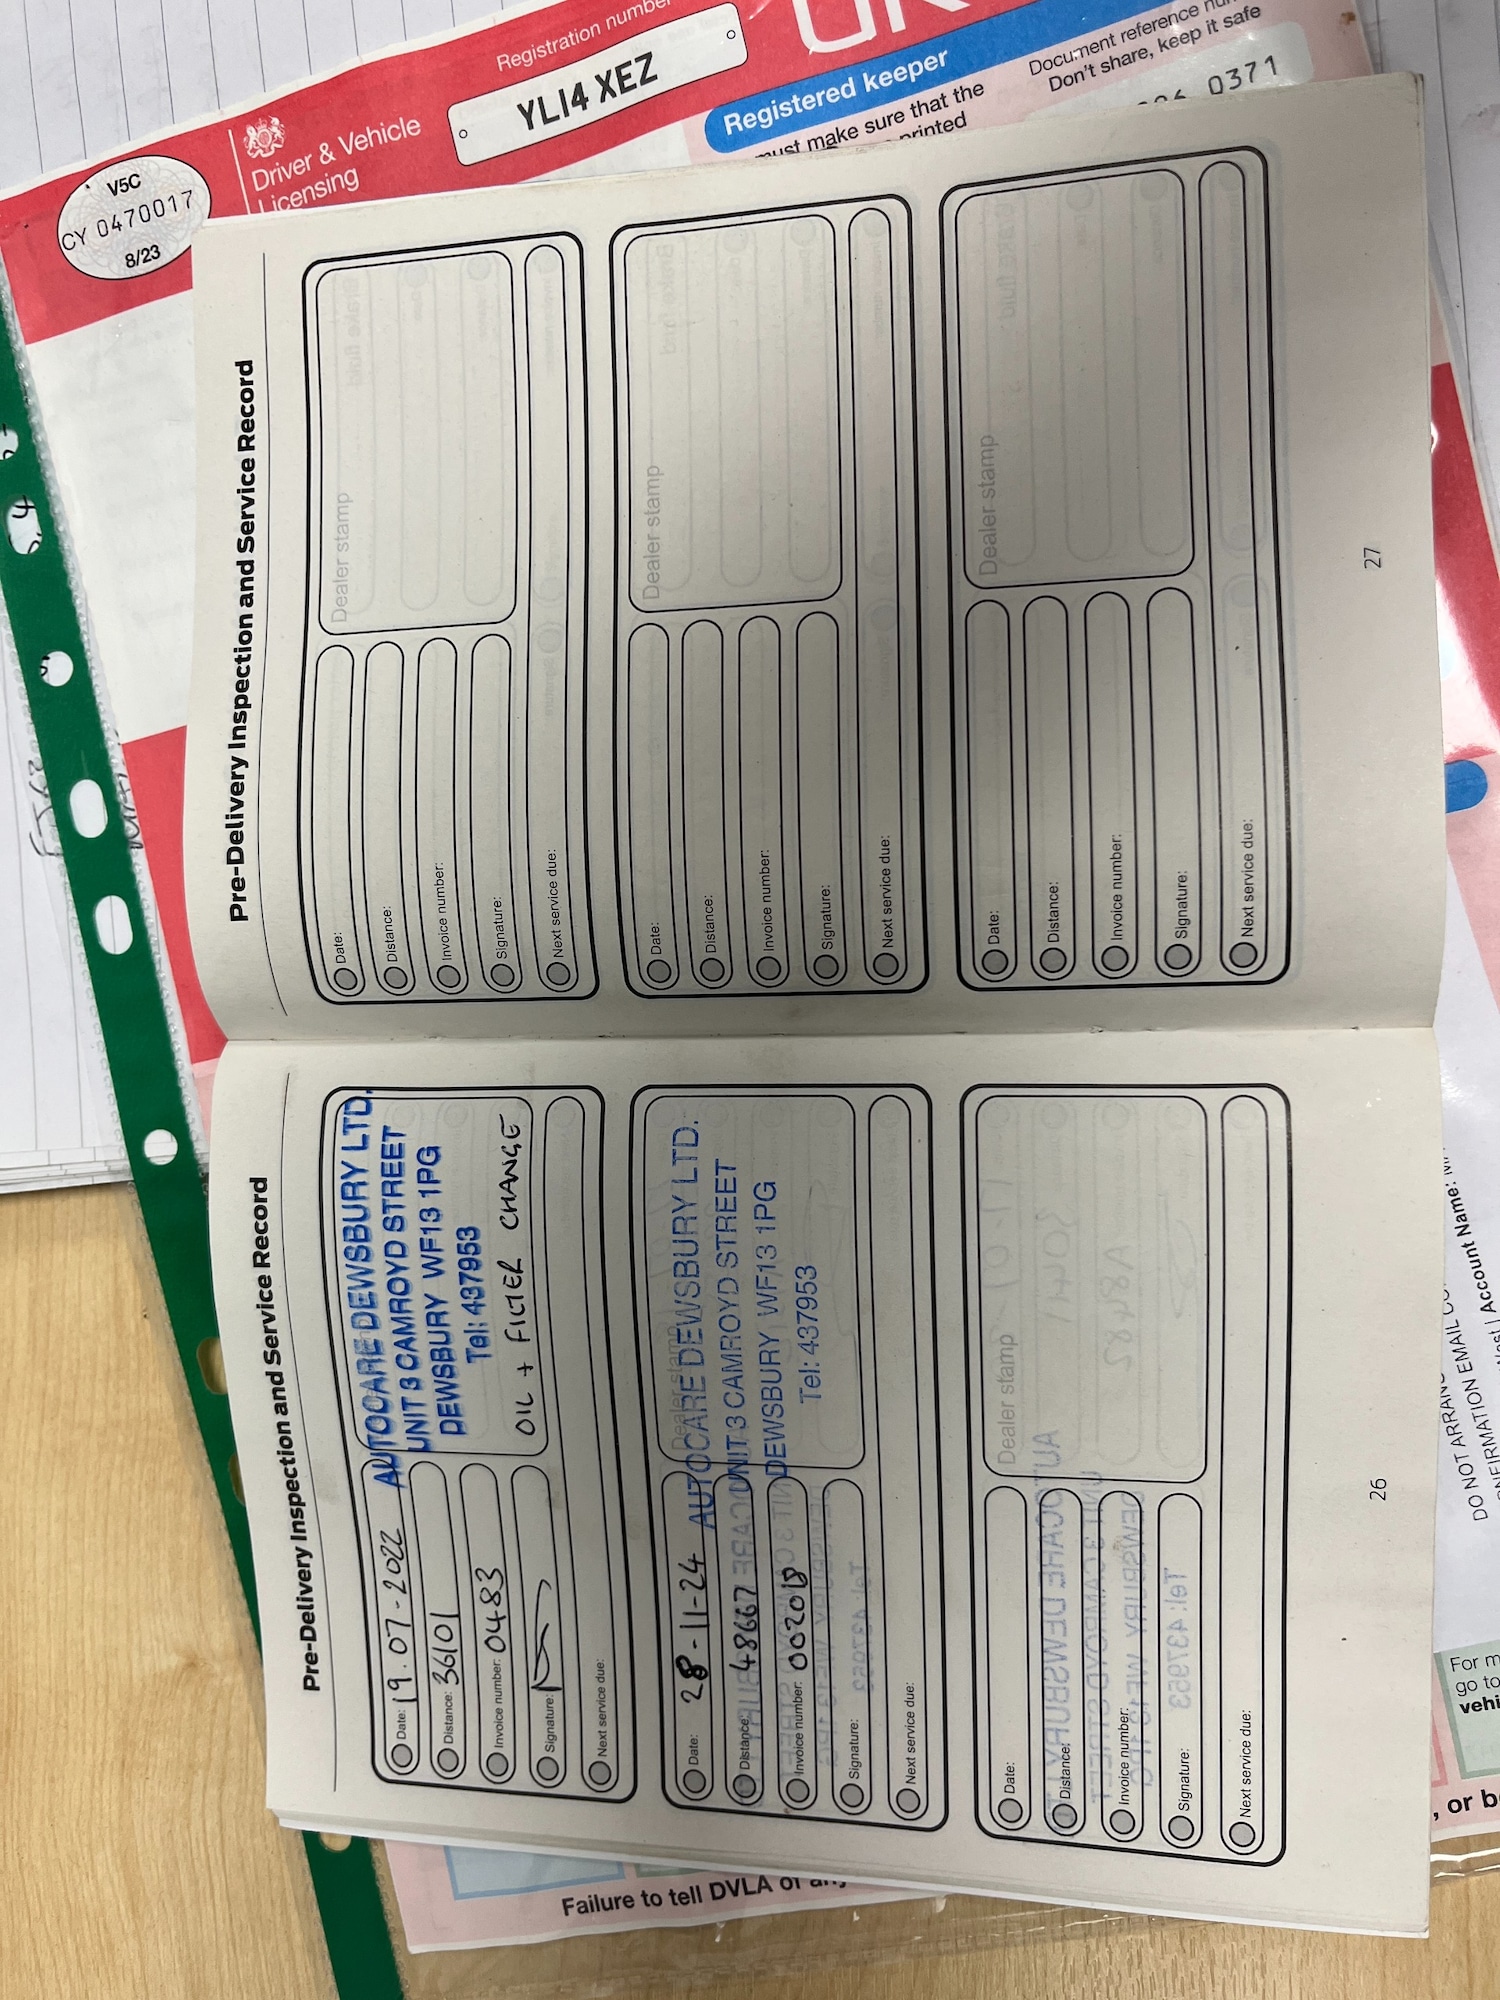 Registration number
YL14 XEZ
V5C
CY 0470017
8/23
Driver & Vehicle
Licensing
Registered keeper
must make sure that the
printed
Document reference
Don't share, keep it safe
0371
Pre-Delivery Inspection and Service Record
Date: 19.07-2022
Distance: 36101
Invoice number: 0483
Signature:
Next service due:
AUTOCARE DEWSBURY LTD.
UNIT 3 CAMROYD STREET
DEWSBURY WF13 1PG
Tel: 437953
OIL + FILTER CHANGE
Date: 28-11-24
Distance: 48667
Invoice number:
Signature:
Next service due:
Dealer stamp
AUTOCARE DEWSBURY LTD.
UNIT 3 CAMROYD STREET
DEWSBURY WF13 1PG
Tel: 437953
Date:
Distance:
Invoice number:
Signature:
Next service due:
Dealer stamp
26
Pre-Delivery Inspection and Service Record
Date:
Distance:
Invoice number:
Signature:
Next service due:
Dealer stamp
Date:
Distance:
Invoice number:
Signature:
Next service due:
Dealer stamp
Date:
Distance:
Invoice number:
Signature:
Next service due:
Dealer stamp
27
Failure to tell DVLA or
DO NOT ARRANG
EMAIL
Account Name:
For m
go to
vehi
, or b